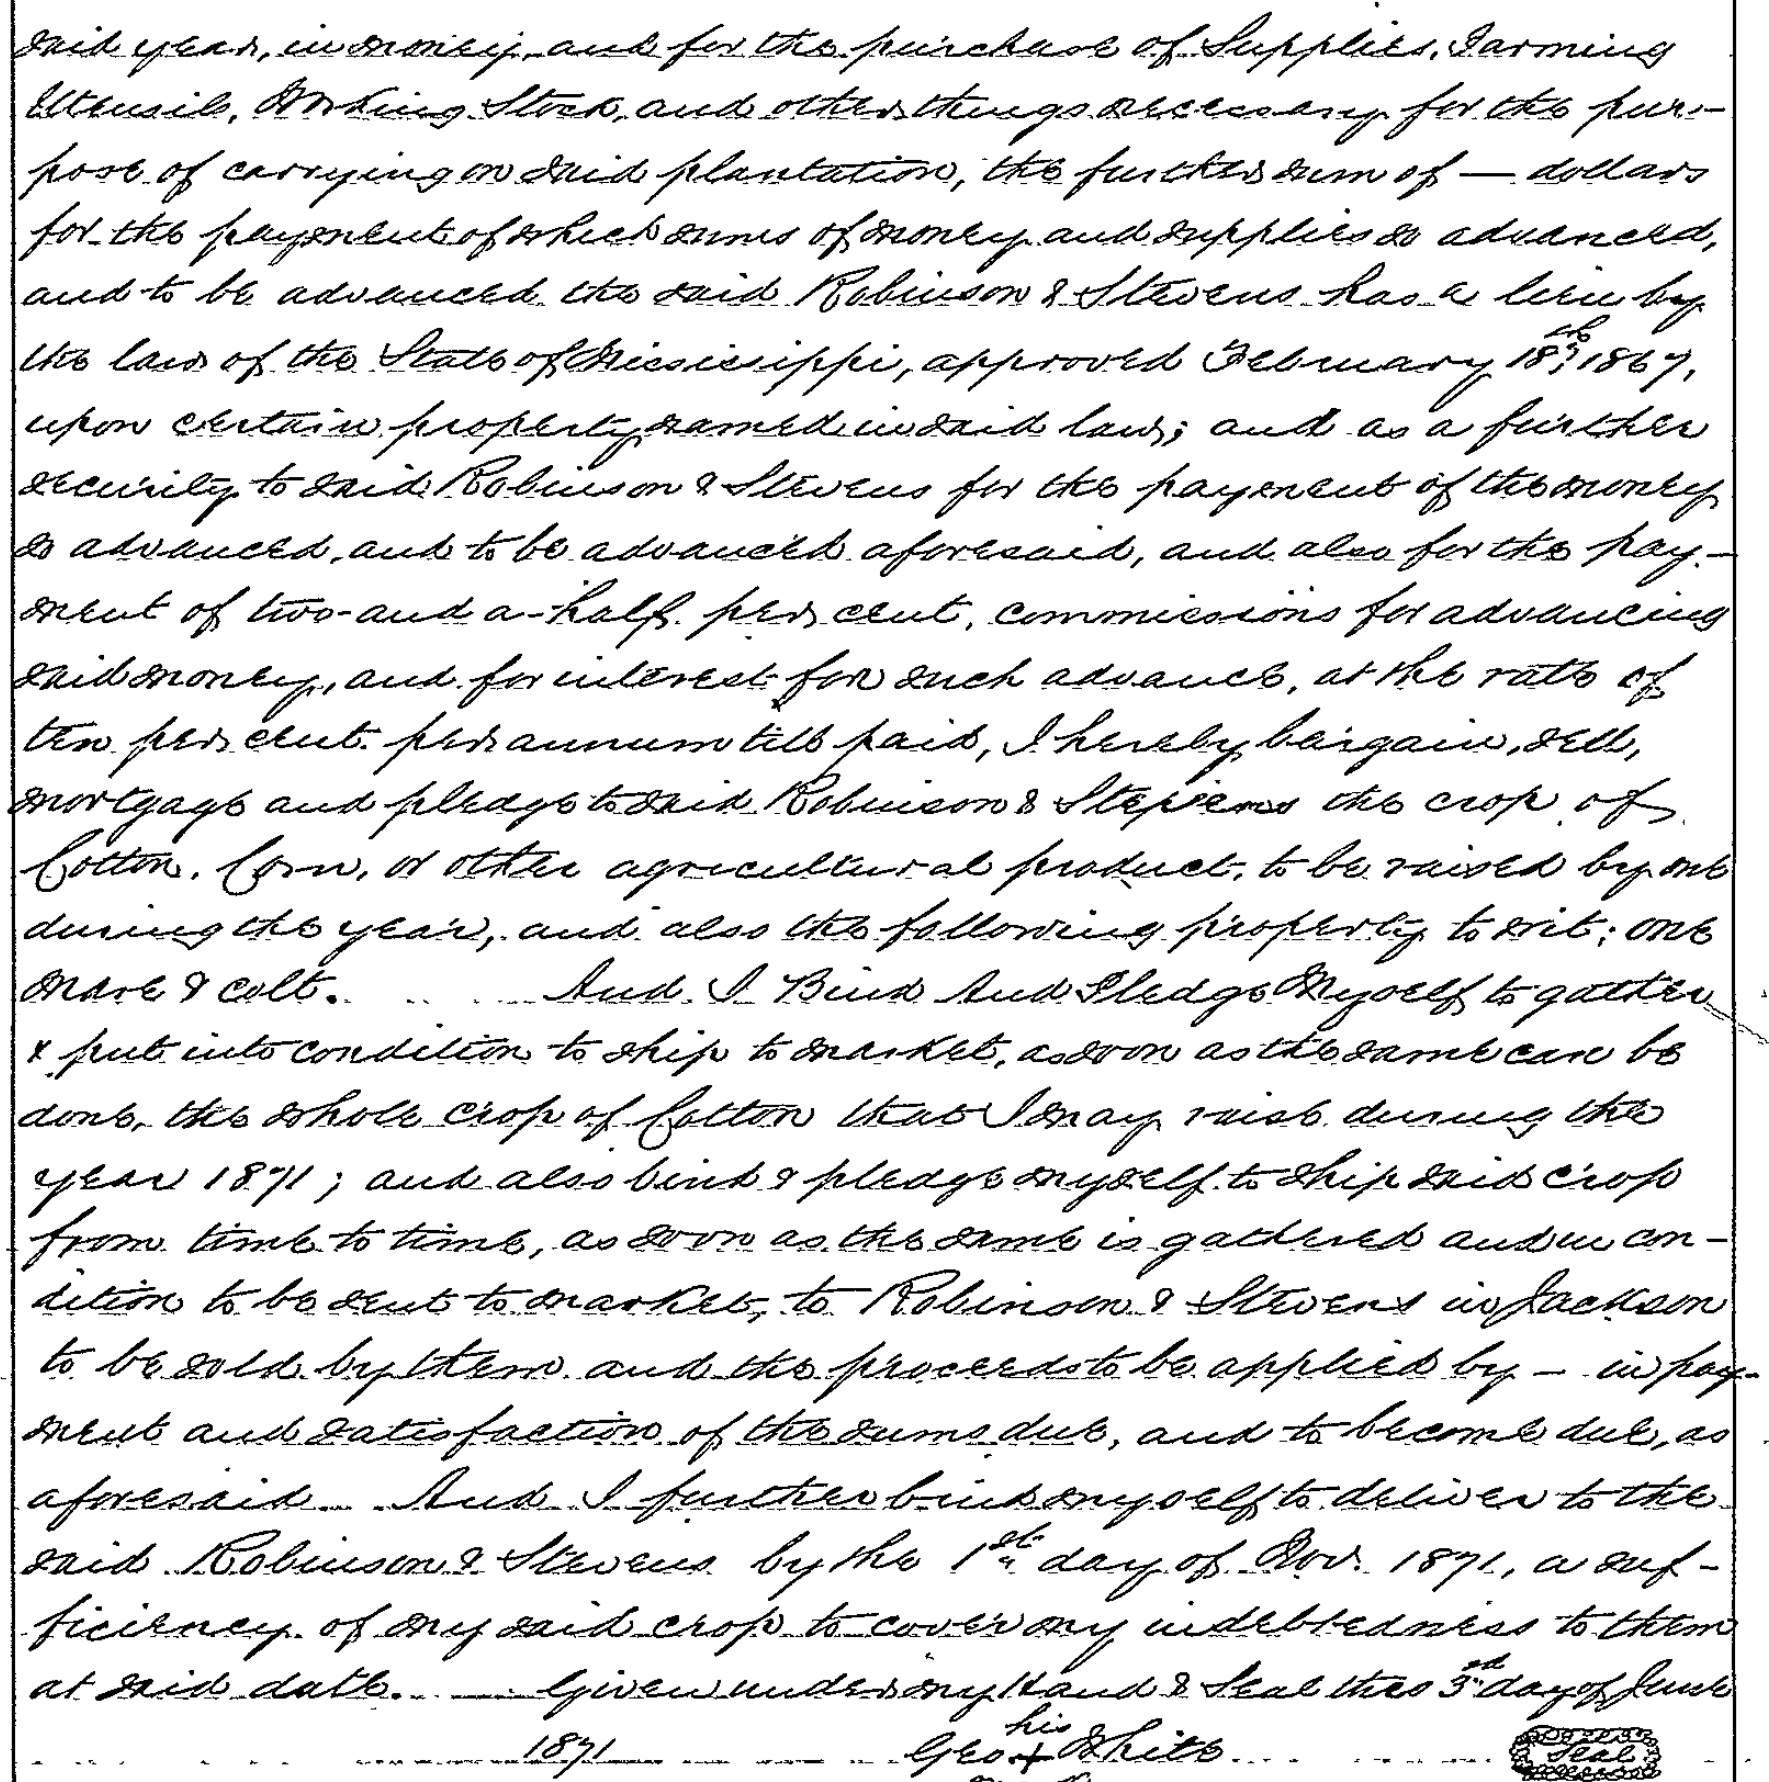 said year, in money, and for the purchase of Supplies, Farming
Utensils, Working Stock, and other things necessary for the pur-
pose of carrying on said plantation, the further sum of — dollars
for the payment of which sums of money and supplies so advanced,
and to be advanced the said Robinson & Stevens has a lien by
the law of the State of Mississippi, approved February 18th, 1867,
upon certain property named in said law; and as a further
security to said Robinson & Stevens for the payment of the money
so advanced, and to be advanced aforesaid, and also for the pay-
ment of two-and a-half per cent, commissions for advancing
said money, and for interest for such advance, at the rate of
ten per cent. per annum till paid, I hereby bargain, sell,
mortgage and pledge to said Robinson & Stevens the crop of
Cotton, Corn, or other agricultural product, to be raised by me
during the year, and also the following property to wit; one
mare & colt. And I Bind And Pledge Myself to gather
& put into condition to ship to market, as soon as the same can be
done, the whole crop of Cotton that I may raise during the
year 1871; and also bind & pledge myself to ship said crop
from time to time, as soon as the same is gathered and in con-
dition to be sent to market, to Robinson & Stevens in Jackson
to be sold by them and the proceeds to be applied by — in pay-
ment and satisfaction of the sums due, and to become due, as
aforesaid. And I further bind myself to deliver to the
said Robinson & Stevens by the 1st day of Nov. 1871, a suf-
ficiency of my said crop to cover my indebtedness to them
at said date. Given under my Hand & Seal this 3rd day of June
his
1871 Geo + White Seal